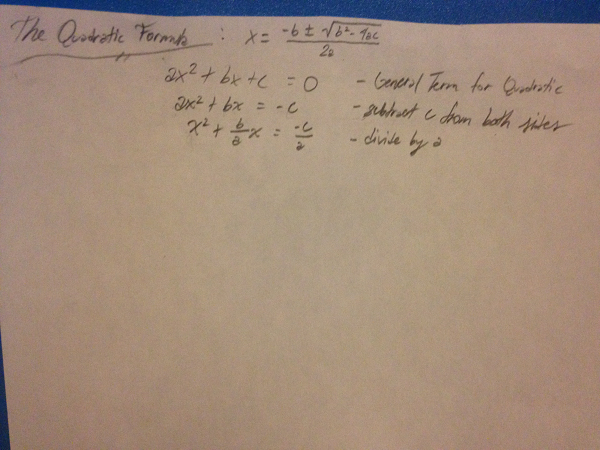 The Quadratic Formula : x = (-b ± √(b² - 4ac)) / 2a
ax² + bx + c = 0 - General Term for Quadratic
ax² + bx = -c - subtract c from both sides
x² + b/a x = -c/a - divide by a